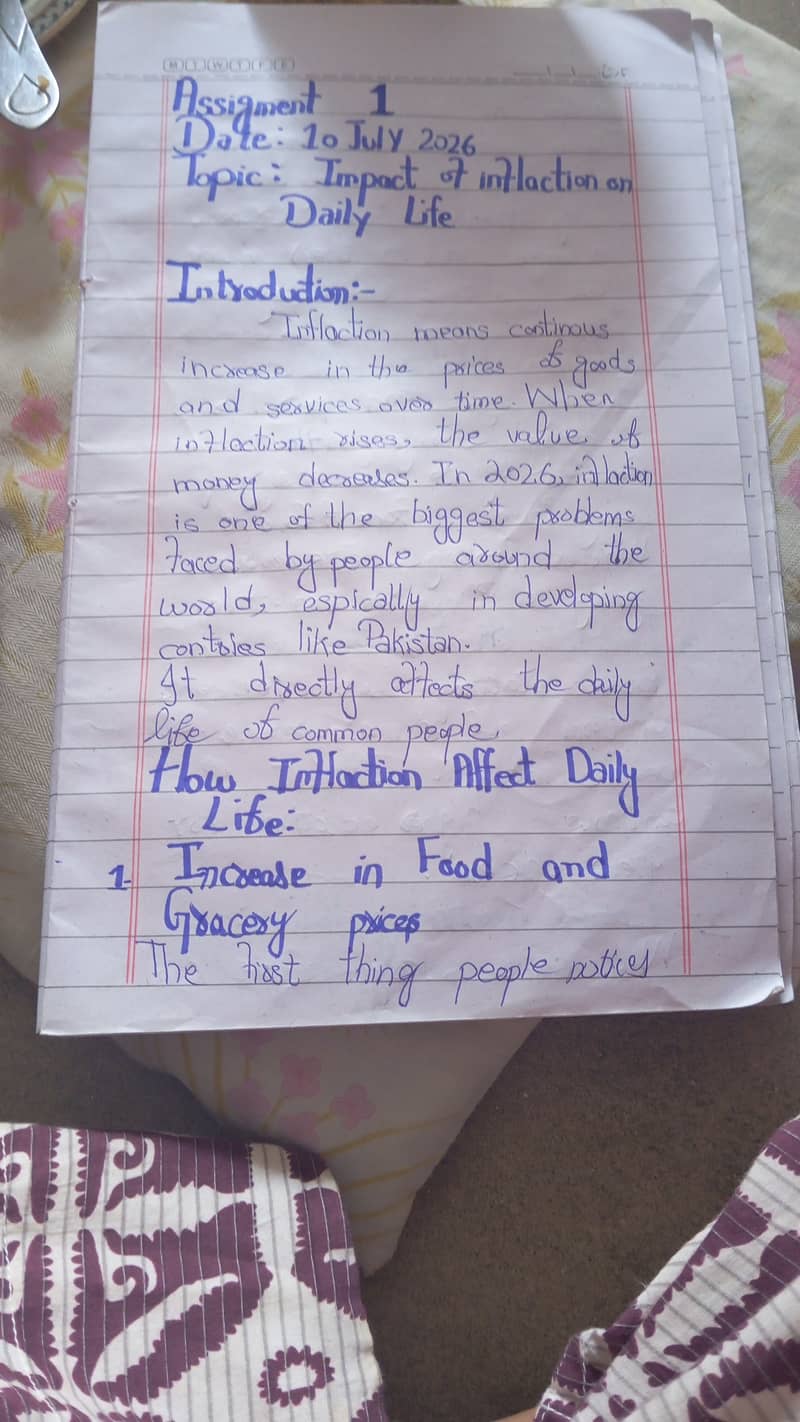 M T W T F S
Assigment 1
Date: 10 July 2026
Topic: Impact of inflaction on
Daily Life
Introduction:-
Inflaction means continous
increase in the prices of goods
and services over time. When
inflaction rises, the value of
money decreases. In 2026, inflaction
is one of the biggest problems
faced by people around the
world, espically in developing
contries like Pakistan.
It directly affects the daily
life of common people.
How Inflaction Affect Daily
Life:
1- Increase in Food and
Gracery prices
The first thing people notices